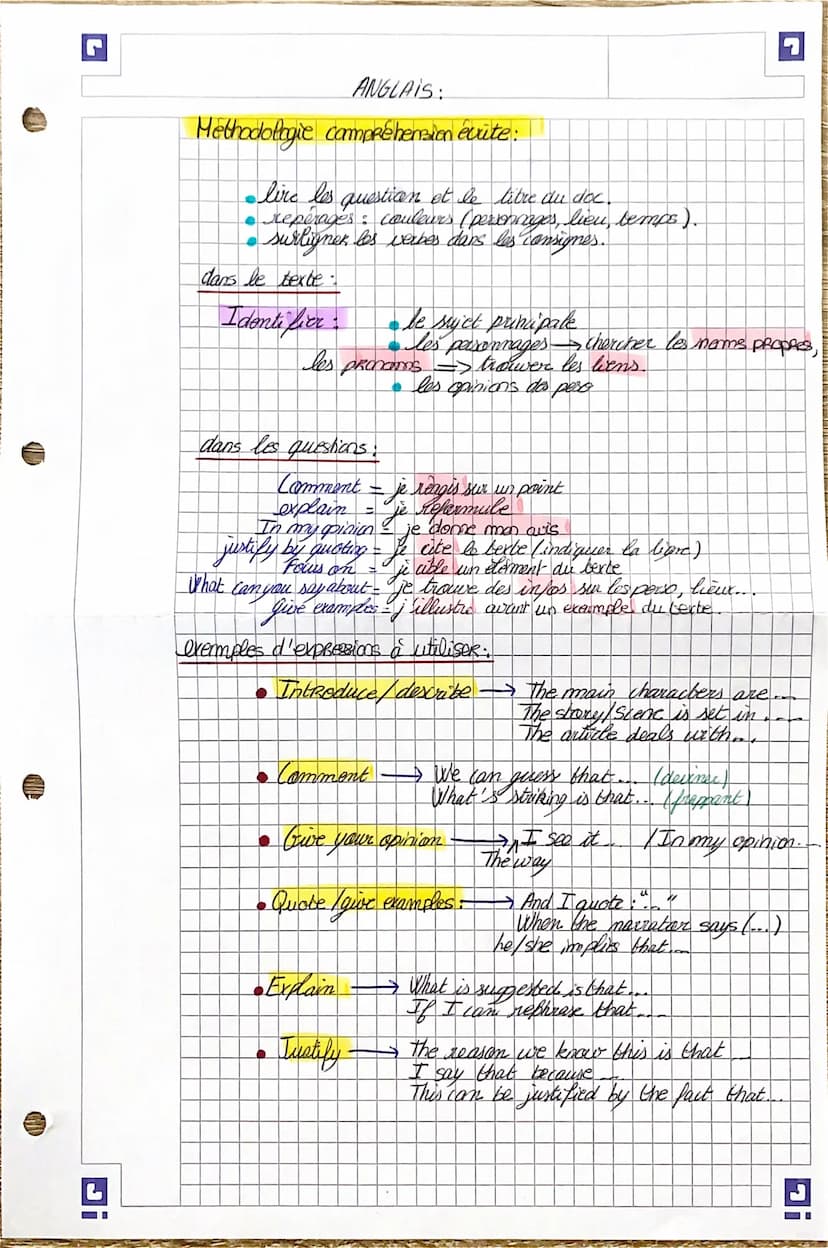 ANGLAIS:
Méthodologie compréhension écrite:
• lire les question et le titre du doc.
• repérages : couleurs (personnages, lieu, temps).
• surligner les verbes dans les consignes.
dans le texte :
Identifier : • le sujet principale
• les personnages → chercher les noms propres,
les pronoms => trouver les liens.
• les opinions des perso
dans les questions :
Comment = je réagis sur un point
explain = je reformule
In my opinion = je donne mon avis
justify by quoting = je cite le texte (indiquer la ligne)
Focus on = je cible un élément du texte
What can you say about = je trouve des infos sur les perso, lieux...
Give examples = j'illustre avant un exemple du texte.
exemples d'expressions à utiliser:
• Introduce/describe → The main characters are...
The story/scene is set in....
The article deals with...
• Comment → We can guess that... (deviner)
What's striking is that... (frappant)
• Give your opinion → ^ I see it... / In my opinion...
The way
• Quote/give examples: → And I quote : "..."
When the narrator says (...)
he/she implies that...
• Explain → What is suggested is that...
If I can rephrase that...
• Justify → The reason we know this is that...
I say that because...
This can be justified by the fact that...